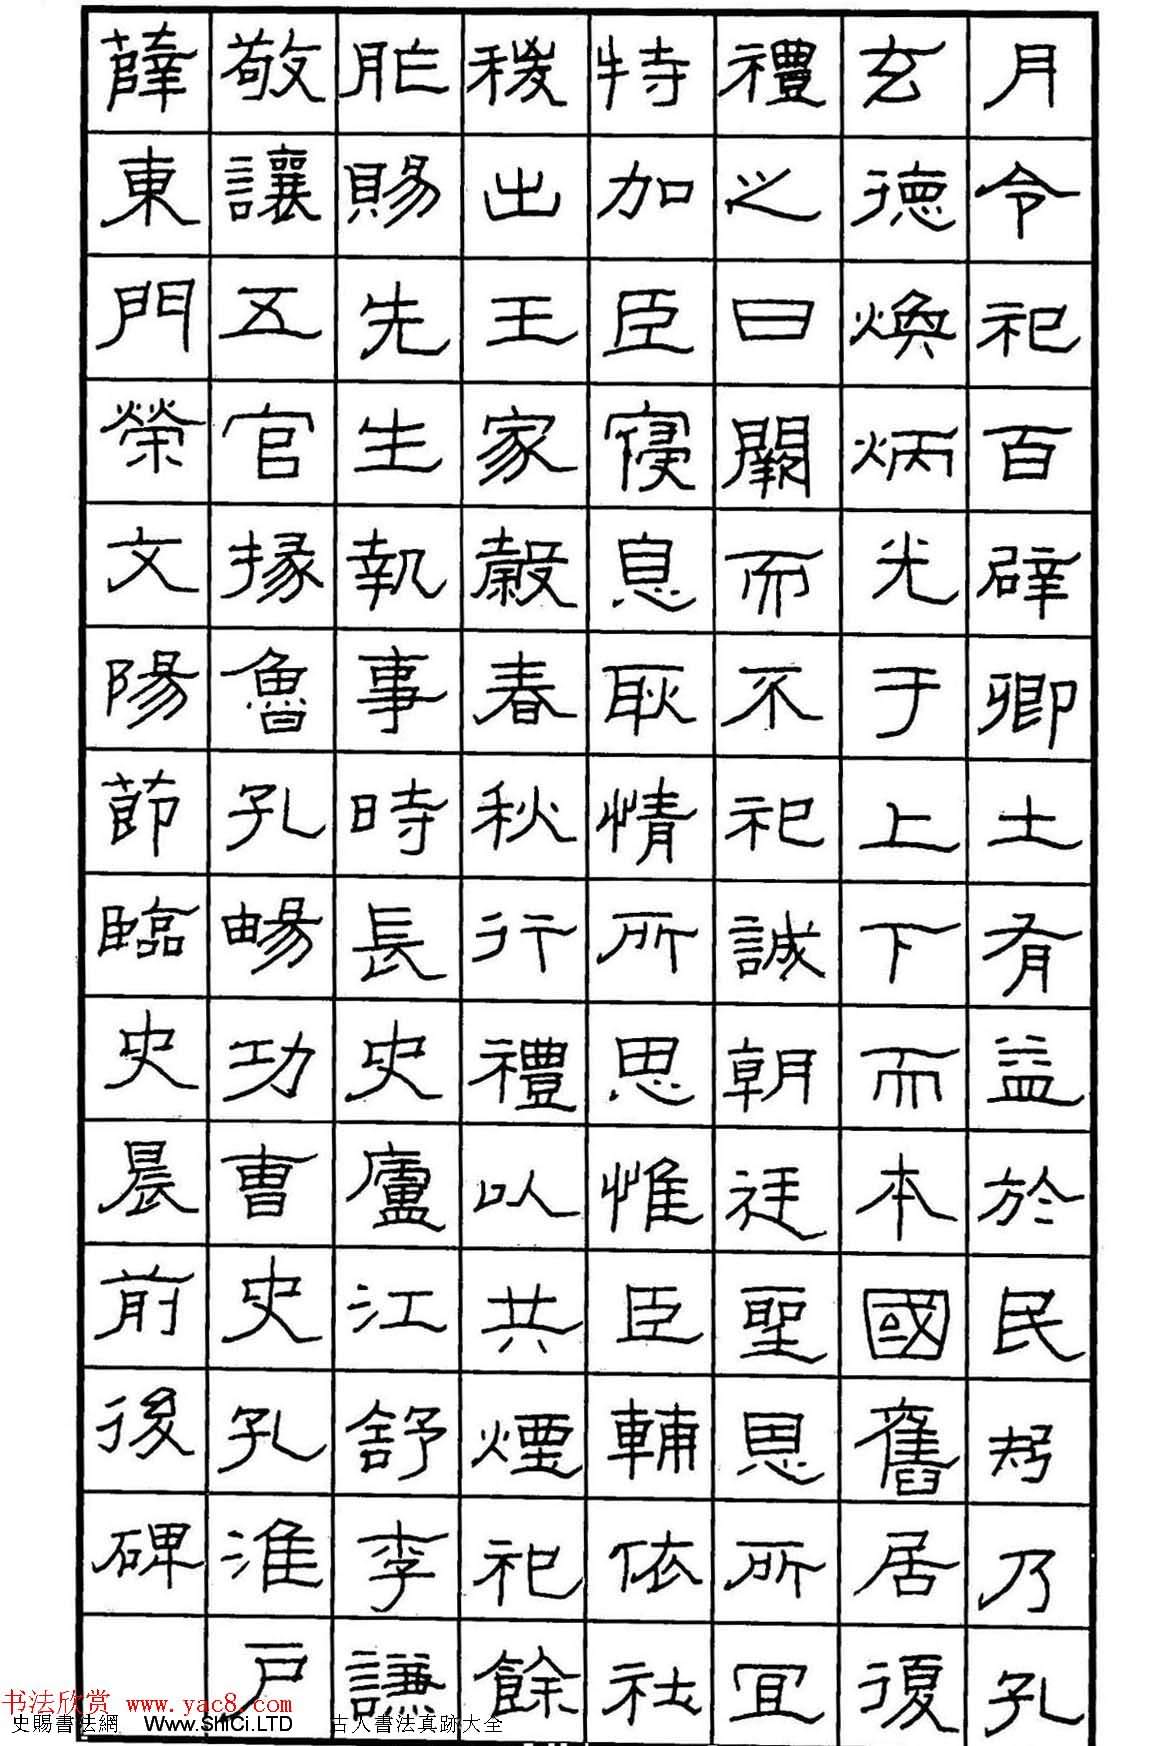 月令祀百辟卿土有益於民矧乃孔
玄德煥炳光于上下而本國舊居復
禮之日闕而不祀誠朝廷聖恩所宜
特加臣寑息耿情所思惟臣輔依社
稷出王家穀春秋行禮以共煙祀餘
胙賜先生執事時長史廬江舒李謙
敬讓五官掾魯孔暢功曹史孔淮戶
薛東門榮文陽節臨史晨前後碑
书法欣赏 www.yac8.com
史賜書法網 Www.SHiCi.LTD 古人書法真跡大全